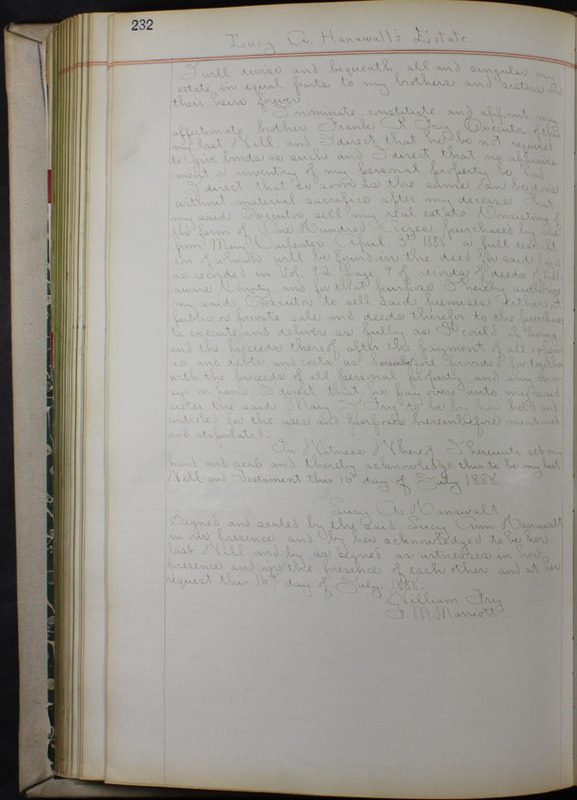 232
Lucy A. Hanawalt's Estate.
I will devise and bequeath all and singular my
estate in equal parts to my brothers and sisters
their heirs forever
I nominate, constitute and appoint my
affectionate brother Frank P. Fry Executor of this
my last Will and I direct that he be not required
to give bonds as such and I direct that no appraise-
ment or inventory of my personal property be had
I direct that so soon as the same can be done
without material sacrifice after my decease that
my said Executor sell my real estate Consisting of
the farm of One Hundred Acres purchased by me
from Mary Carpenter April 3rd 1888 a full descrip
of which will be found in the deed for said
as recorded in Vol. 92 Page 9 of records of deeds of Del
aware County, and for that purpose I hereby authorize
my said Executor to sell said premises either at
public or private sale and deeds therefor to the purchaser
to execute and deliver as fully as I could if living
and the proceeds thereof after the payment of all expens
es and debts and costs as hereinbefore provided for together
with the proceeds of all personal property and any mon
eys on hand I direct that he pay over unto my said
sister the said Mary Fry to be by her held and
controled for the uses and purposes hereinbefore mentioned
and stipulated.
In Witness Whereof I hereunto set my
hand and seal and thereby acknowledge this to be my last
Will and Testament this 16th day of July 1888.
Lucy A. Hanawalt
Signed and sealed by the said Lucy Ann Hanawalt
in our presence and by her acknowledged to be her
last Will and by us signed as witnesses in her
presence and in the presence of each other and at her
request this 16th day of July. 1888.
William Fry
F. M. Marriott.